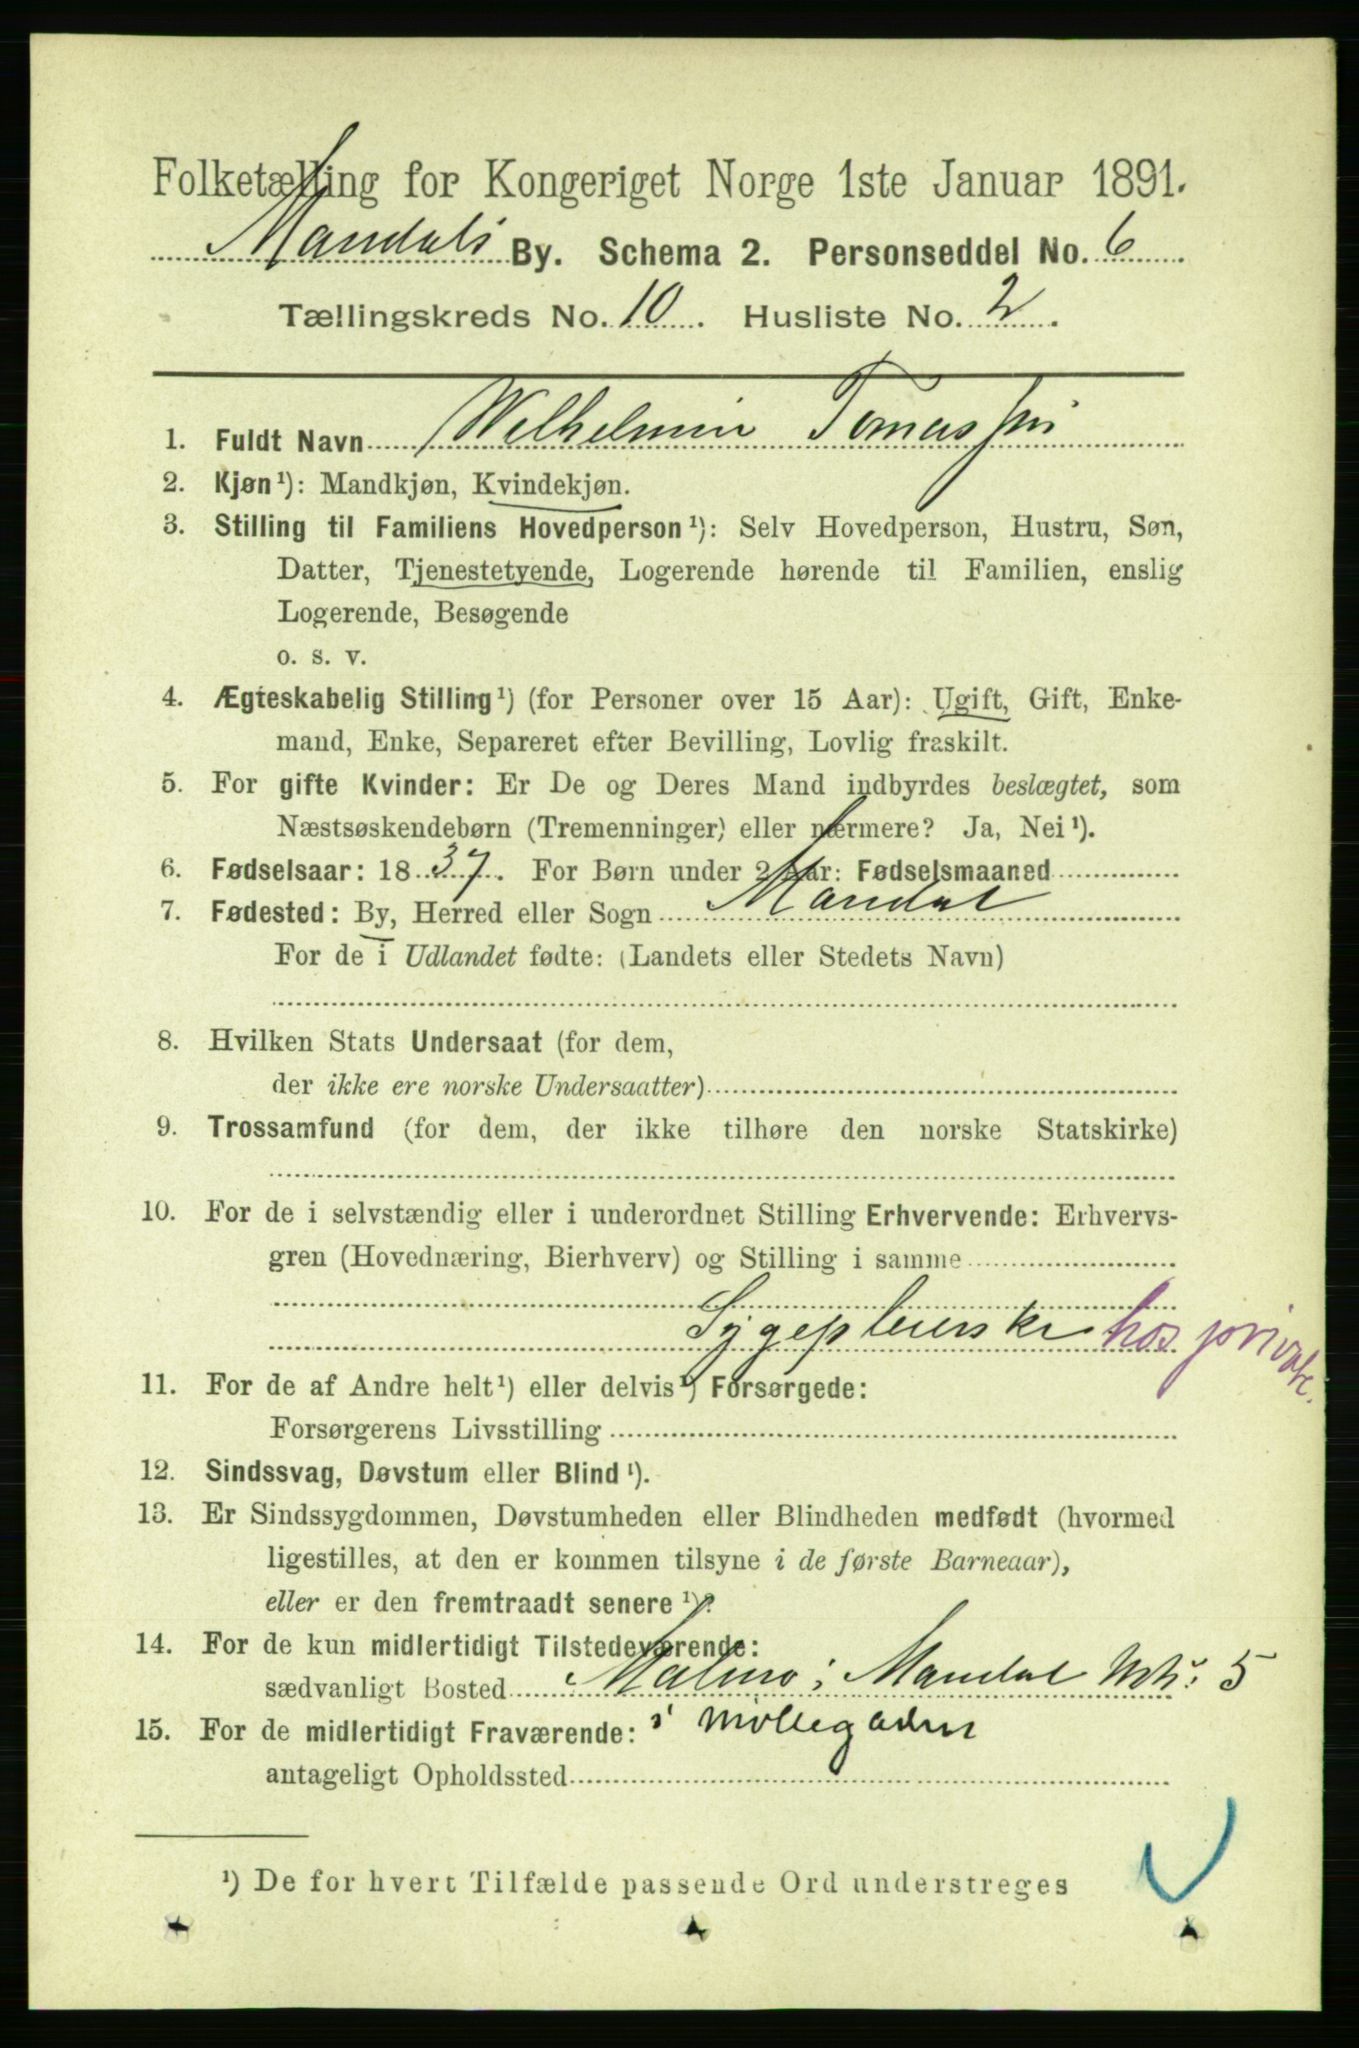 Folketælling for Kongeriget Norge 1ste Januar 1891.
Mandals By. Schema 2. Personseddel No. 6
Tællingskreds No. 10. Husliste No. 2.
1. Fuldt Navn Welhelmin
2. Kjøn ¹): Mandkjøn, Kvindekjøn.
3. Stilling til Familiens Hovedperson ¹): Selv Hovedperson, Hustru, Søn,
Datter, Tjenestetyende, Logerende hørende til Familien, enslig
Logerende, Besøgende
o. s. v.
4. Ægteskabelig Stilling ¹) (for Personer over 15 Aar): Ugift, Gift, Enke-
mand, Enke, Separeret efter Bevilling, Lovlig fraskilt.
5. For gifte Kvinder: Er De og Deres Mand indbyrdes beslægtet, som
Næstsøskendebørn (Tremenninger) eller nærmere? Ja, Nei ¹).
6. Fødselsaar: 1837. For Børn under 2 Aar: Fødselsmaaned
7. Fødested: By, Herred eller Sogn Mandal
For de i Udlandet fødte: (Landets eller Stedets Navn)
8. Hvilken Stats Undersaat (for dem,
der ikke ere norske Undersaatter)
9. Trossamfund (for dem, der ikke tilhøre den norske Statskirke)
10. For de i selvstændig eller i underordnet Stilling Erhvervende: Erhvervs-
gren (Hovednæring, Bierhverv) og Stilling i samme
Sygepleierske hos private.
11. For de af Andre helt ¹) eller delvis ¹) Forsørgede:
Forsørgerens Livsstilling
12. Sindssvag, Døvstum eller Blind ¹).
13. Er Sindssygdommen, Døvstumheden eller Blindheden medfødt (hvormed
ligestilles, at den er kommen tilsyne i de første Barneaar),
eller er den fremtraadt senere ¹)?
14. For de kun midlertidigt Tilstedeværende:
sædvanligt Bosted Malmø i Mandal 5
15. For de midlertidigt Fraværende: i Møllegaden
antageligt Opholdssted
¹) De for hvert Tilfælde passende Ord understreges